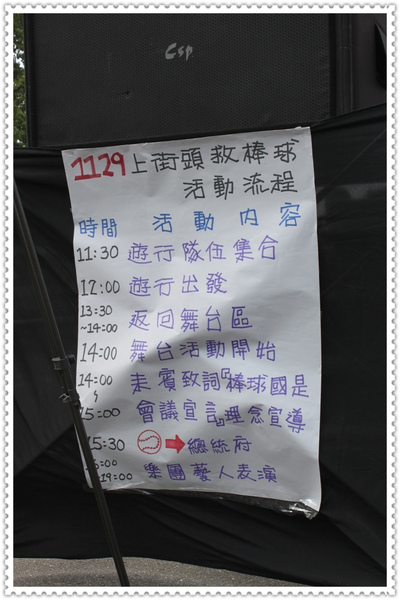 Csp
1129上街頭救棒球
活動流程
時間 活動內容
11:30 遊行隊伍集合
12:00 遊行出發
13:30
~14:00 返回舞台區
14:00 舞台活動開始
14:00 來賓致詞『棒球國是
15:00 會議宣言』理念宣導
15:30 ➡總統府
16:00
19:00 樂團藝人表演